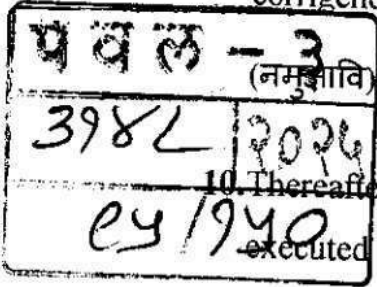 corrigen
पवल - ३
(नमुनावि)
३१४८ २०२५
10.Thereafte
९५/१५०
executed